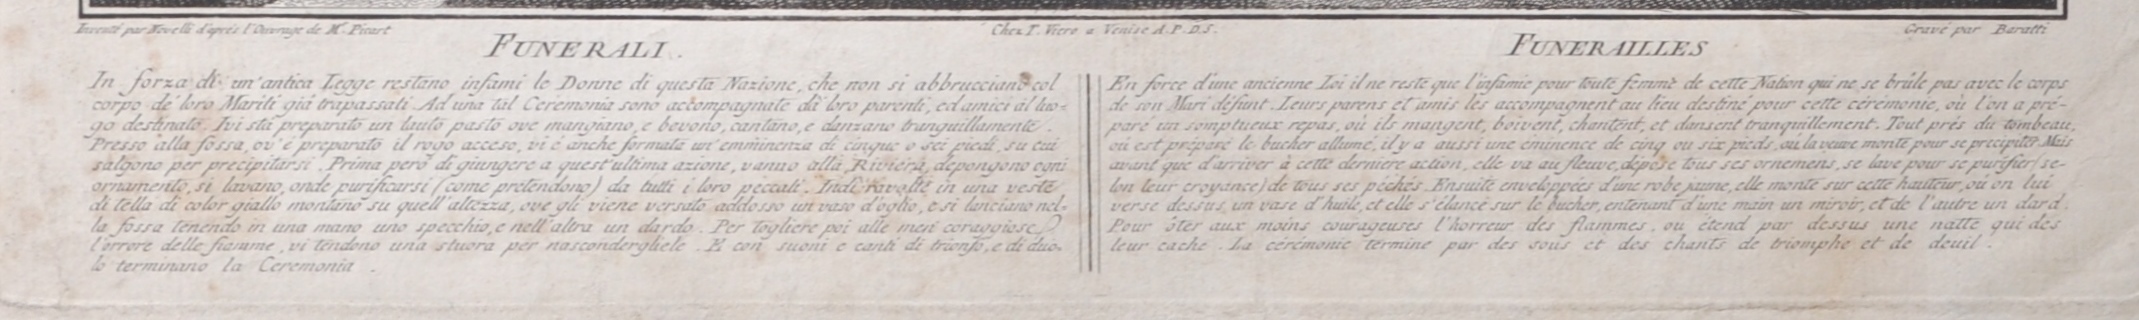 Inventé par Novelli d'aprés l'Ouvrage de Mr. Picart
Chez T. Viero a Venise d. P. D. S.
Gravé par Baratti
FUNERALI.
In forza di un'antica Legge restano infami le Donne di questa Nazione, che non si abbrucciano col
corpo de' loro Mariti già trapassati. Ad una tal Ceremonia sono accompagnate da' loro parenti, ed amici al luo-
go destinato. Ivi stà preparato un lauto pasto ove mangiano, e bevono, cantano, e danzano tranquillamente.
Presso alla fossa, ov'è preparato il rogo acceso, vi è anche formata un'emminenza di cinque o sei piedi, su cui
salgono per precipitarsi. Prima però di giungere a quest'ultima azione, vanno alla Riviera, depongono ogni
ornamento, si lavano, onde purificarsi (come pretendono) da tutti i loro peccati. Indi ravolte in una veste
di tella di color giallo montano su quell'altezza, ove gli viene versato addosso un vaso d'oglio, e si lanciano nel-
la fossa tenendo in una mano uno specchio, e nell'altra un dardo. Per togliere poi alle men coraggiose
l'orrore delle fiamme, vi tendono una stuora per nasconderglièle. E con suoni e canti di trionfo, e di duo-
lo terminano la Ceremonia.
FUNERAILLES
En force d'une ancienne Loi il ne reste que l'infamie pour toute femme de cette Nation qui ne se brûle pas avec le corps
de son Mari défunt. Leurs parens et amis les accompagnent au lieu destiné pour cette cérémonie, où l'on a pré-
paré un somptueux repas, où ils mangent, boivent, chantent, et dansent tranquillement. Tout prés du tombeau,
où est préparé le bucher allumé, il y a aussi une éminence de cinq ou six pieds, où la veuve monte pour se precipiter. Mais
avant que d'arriver à cette derniere action, elle va au fleuve, dépose tous ses ornemens, se lave pour se purifier (se-
lon leur croyance) de tous ses péchés. Ensuite enveloppées d'une robe jaune, elle monte sur cette hauteur, où on lui
verse dessus, un vase d'huile, et elle s'élance sur le bucher, entenant d'une main un miroir, et de l'autre un dard.
Pour ôter aux moins courageuses l'horreur des flammes, ou étend par dessus une natte qui des
leur cache. La cérémonie termine par des sons et des chants de triomphe et de deuil.